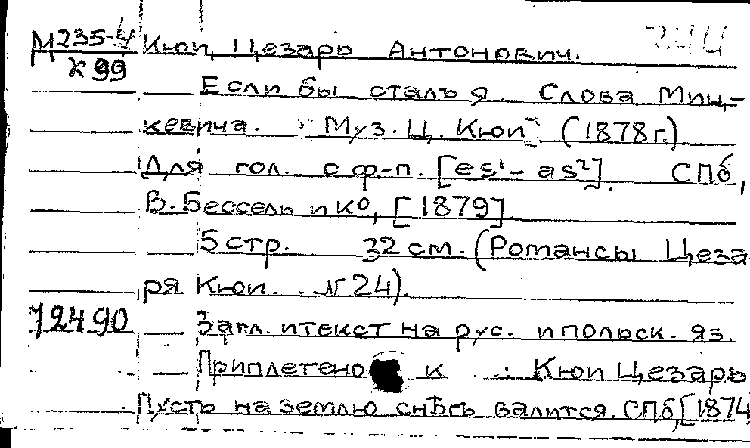 М235-4 Кюи, Цезарь Антонович. 244
К 99
Если бы сталъ я Слова Миц-
кевича. Муз. Ц. Кюи (1878 г.)
Для гол. с ф-п. [es¹-as²]. СПб,
В. Бессель и К⁰, [1879]
5 стр. 32 см. (Романсы Цеза
ря Кюи. № 24).
72490 Загл. и текст на рус. и польск. яз.
Приплетено к : Кюи Цезарь
Пусть на землю снѣгъ валится. СПб, [1874